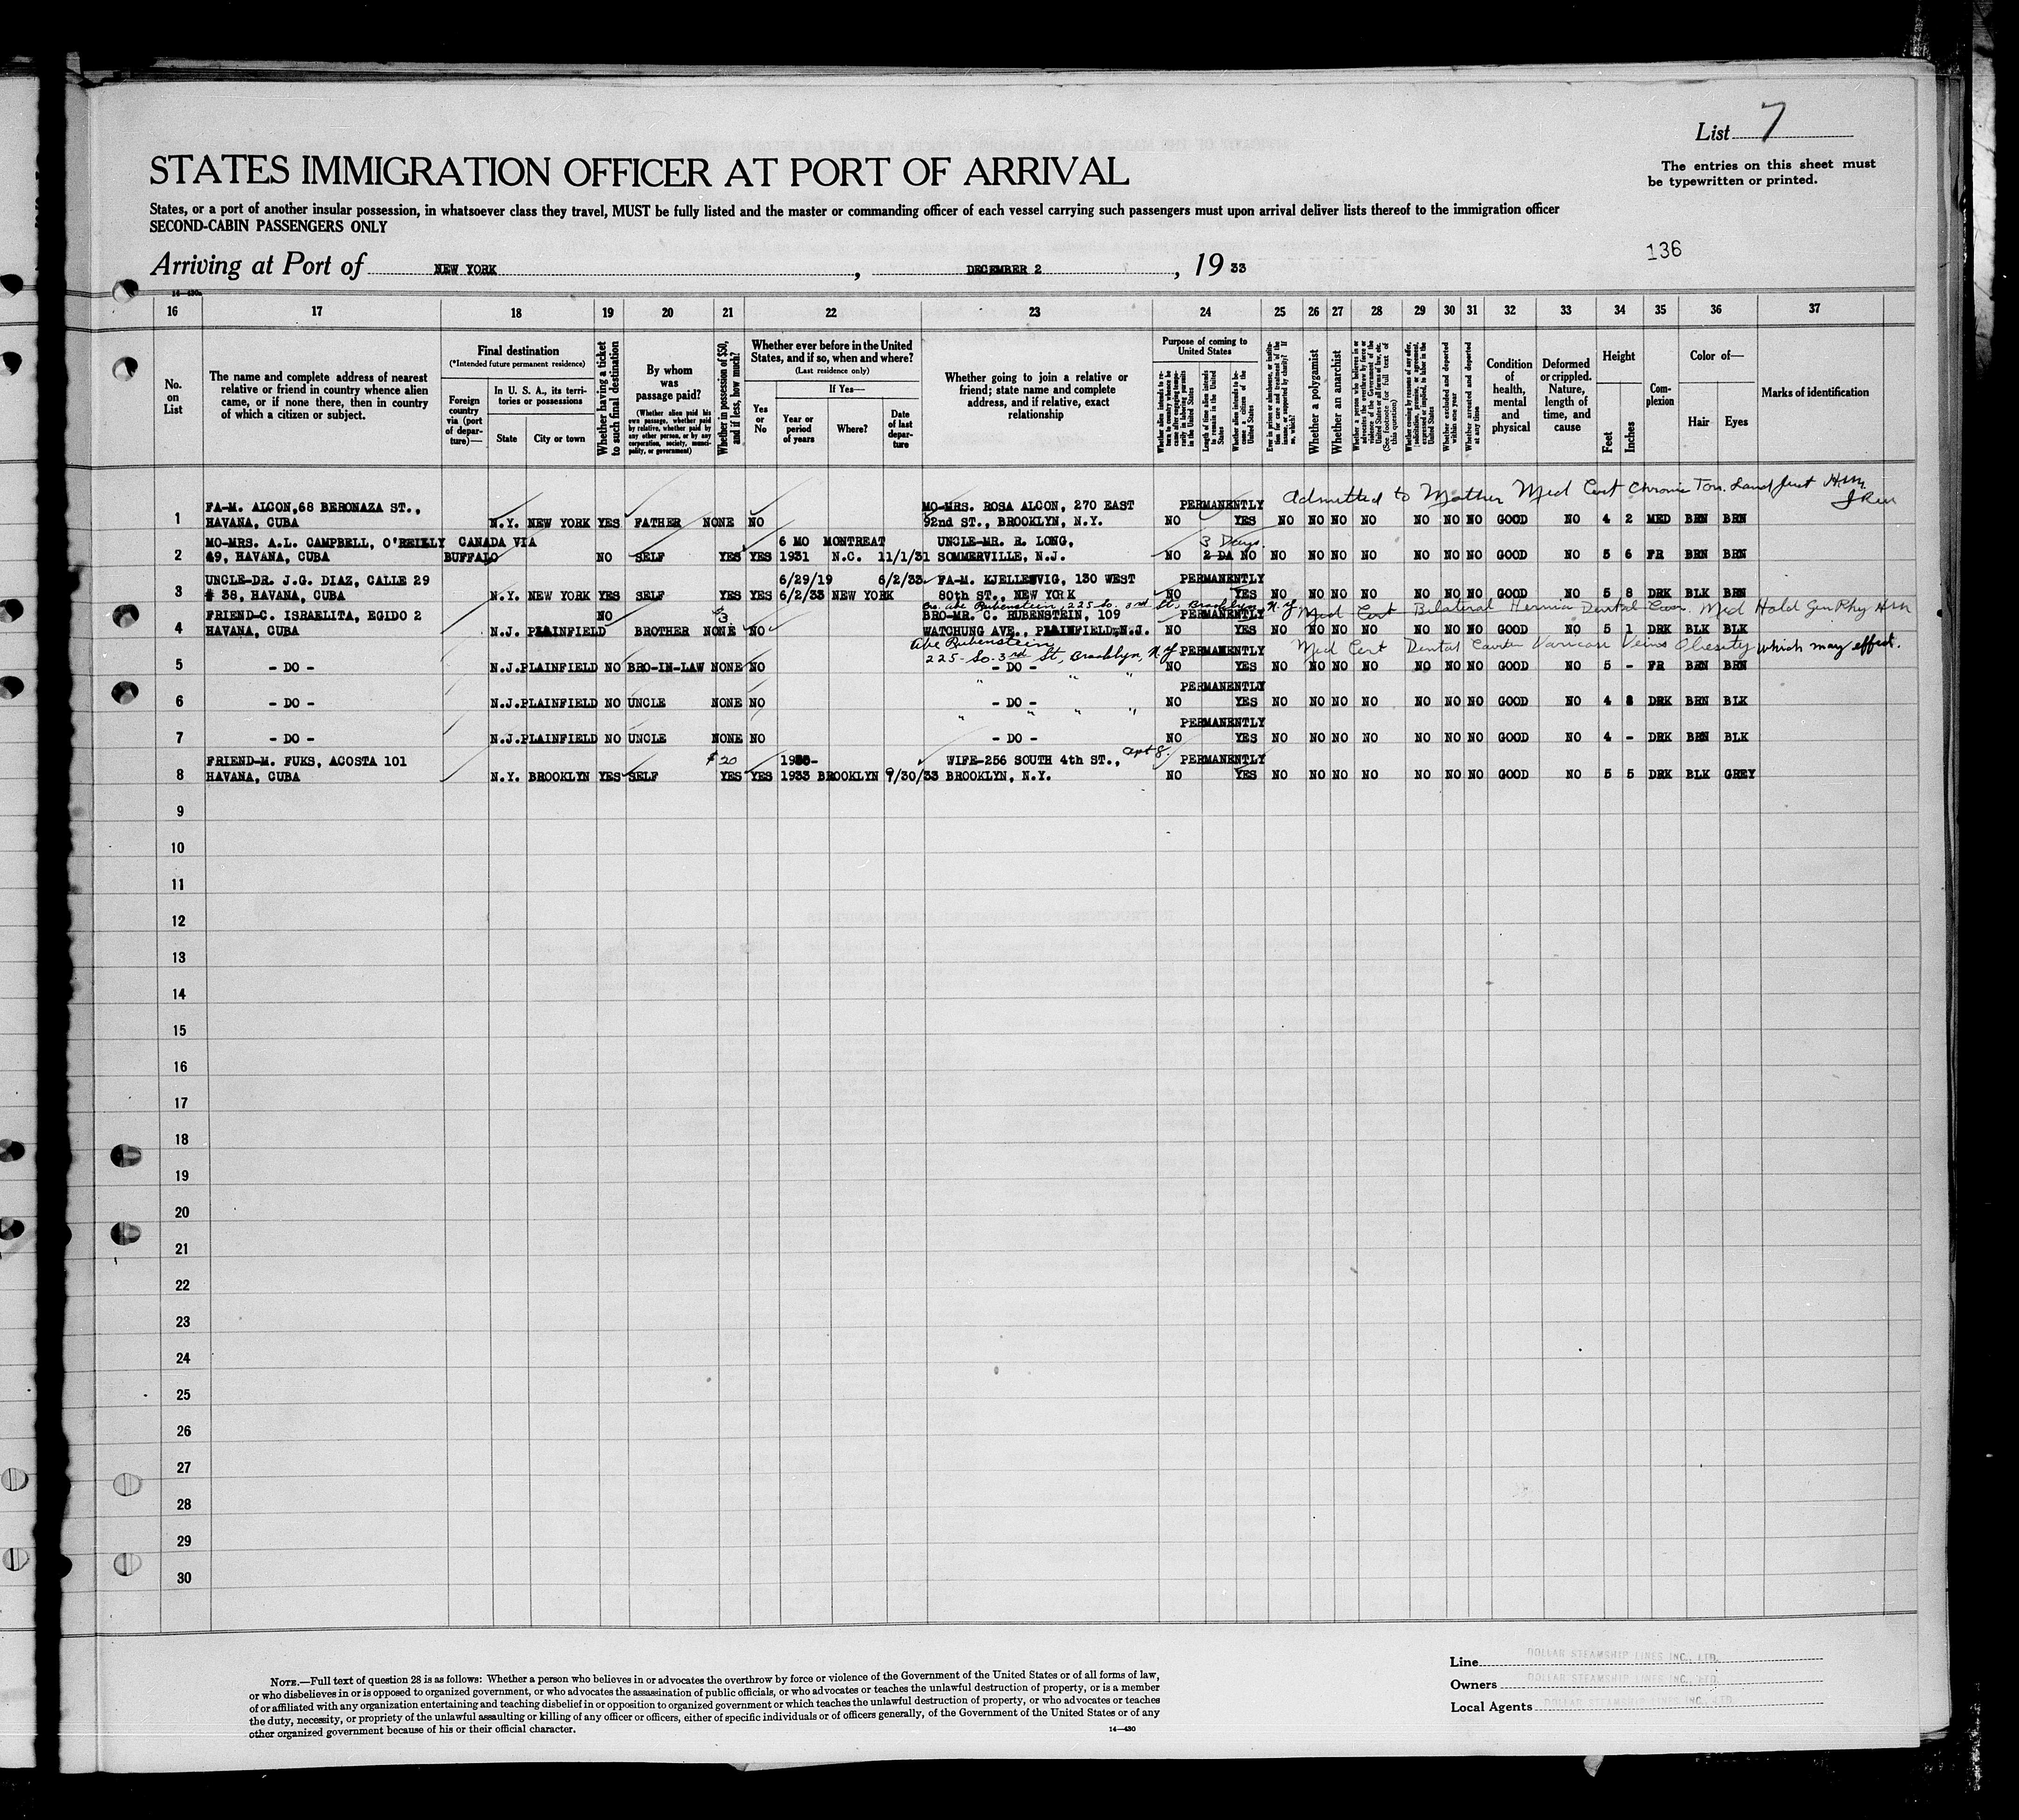 List 7
The entries on this sheet must
be typewritten or printed.
STATES IMMIGRATION OFFICER AT PORT OF ARRIVAL
States, or a port of another insular possession, in whatsoever class they travel, MUST be fully listed and the master or commanding officer of each vessel carrying such passengers must upon arrival deliver lists thereof to the immigration officer
SECOND-CABIN PASSENGERS ONLY
136
Arriving at Port of NEW YORK, DECEMBER 2, 19 33
16 17 18 19 20 21 22 23 24 25 26 27 28 29 30 31 32 33 34 35 36 37
No. on List
The name and complete address of nearest relative or friend in country whence alien came, or if none there, then in country of which a citizen or subject.
Final destination
(*Intended future permanent residence)
Foreign country via (port of departure)—
In U. S. A., its territories or possessions
State
City or town
Whether having a ticket to such final destination
By whom was passage paid?
(Whether alien paid his own passage, whether paid by relative, whether paid by any other person, or by any corporation, society, municipality, or government)
Whether in possession of $50, and if less, how much?
Whether ever before in the United States, and if so, when and where?
(Last residence only)
Yes or No
If Yes—
Year or period of years
Where?
Date of last departure
Whether going to join a relative or friend; state name and complete address, and if relative, exact relationship
Purpose of coming to United States
Length of time alien intends to remain in the United States
Whether alien intends to become a citizen of the United States
Whether a polygamist
Whether an anarchist
Whether excluded and deported within one year
Whether arrested and deported at any time
Condition of health, mental and physical
Deformed or crippled. Nature, length of time, and cause
Height
Feet
Inches
Complexion
Color of—
Hair
Eyes
Marks of identification
Admitted to Mother Med Cert Chronic Ton.
FA-M. ALCON,68 BERONAZA ST., MO-MRS. ROSA ALCON, 270 EAST PERMANENTLY
1 HAVANA, CUBA N.Y. NEW YORK YES FATHER NONE NO 92nd ST., BROOKLYN, N.Y. NO YES NO NO NO NO NO NO NO GOOD NO 4 2 MED BRN BRN
MO-MRS. A.L. CAMPBELL, O'REILLY CANADA VIA 6 MO MONTREAT UNCLE-MR. R. LONG, 3 Days
2 49, HAVANA, CUBA BUFFALO NO SELF YES YES 1931 N.C. 11/1/31 SOMMERVILLE, N.J. NO 2 DA NO NO NO NO NO NO NO NO GOOD NO 5 6 FR BRN BRN
UNCLE-DR. J.G. DIAZ, CALLE 29 6/29/19 6/2/33 FA-M. KJELLESVIG, 130 WEST PERMANENTLY
3 # 38, HAVANA, CUBA N.Y. NEW YORK YES SELF YES YES 6/2/33 NEW YORK 80th ST., NEW YORK NO YES NO NO NO NO NO NO NO GOOD NO 5 8 DRK BLK BRN
Abe Rubenstein, 225 So. 3rd St, Brooklyn N.Y Med Cert Bilateral Hernia Dental Caries. Med Hold
FRIEND-C. ISRAELITA, EGIDO 2 NO 3 BRO-MR. C. RUBENSTEIN, 109 PERMANENTLY
4 HAVANA, CUBA N.J. PLAINFIELD BROTHER NONE NO WATCHUNG AVE., PLAINFIELD,N.J. NO YES NO NO NO NO NO NO NO GOOD NO 5 1 DRK BLK BLK
Abe Rubenstein
225-So. 3rd St, Brooklyn, N.Y PERMANENTLY Med Cert Dental Caries Varicose Veins Obesity which may affect.
5 - DO - N.J. PLAINFIELD NO BRO-IN-LAW NONE NO - DO - NO YES NO NO NO NO NO NO NO GOOD NO 5 - FR BRN BRN
" " " PERMANENTLY
6 - DO - N.J. PLAINFIELD NO UNCLE NONE NO - DO - NO YES NO NO NO NO NO NO NO GOOD NO 4 8 DRK BRN BLK
" " " " PERMANENTLY
7 - DO - N.J. PLAINFIELD NO UNCLE NONE NO - DO - NO YES NO NO NO NO NO NO NO GOOD NO 4 - DRK BRN BLK
FRIEND-M. FUKS, ACOSTA 101 $20 WIFE-256 SOUTH 4th ST., apt 8. PERMANENTLY
8 HAVANA, CUBA N.Y. BROOKLYN YES SELF YES YES 1933 BROOKLYN 9/30/33 BROOKLYN, N.Y. NO YES NO NO NO NO NO NO NO GOOD NO 5 5 DRK BLK GREY
9
10
11
12
13
14
15
16
17
18
19
20
21
22
23
24
25
26
27
28
29
30
NOTE.—Full text of question 28 is as follows: Whether a person who believes in or advocates the overthrow by force or violence of the Government of the United States or of all forms of law,
or who disbelieves in or is opposed to organized government, or who advocates the assassination of public officials, or who advocates or teaches the unlawful destruction of property, or is a member
of or affiliated with any organization entertaining and teaching disbelief in or opposition to organized government or which teaches the unlawful destruction of property, or who advocates or teaches
the duty, necessity, or propriety of the unlawful assaulting or killing of any officer or officers, either of specific individuals or of officers generally, of the Government of the United States or of any
other organized government because of his or their official character.
14—430
Line DOLLAR STEAMSHIP LINES INC., LTD.
Owners DOLLAR STEAMSHIP LINES INC., LTD.
Local Agents DOLLAR STEAMSHIP LINES INC., LTD.